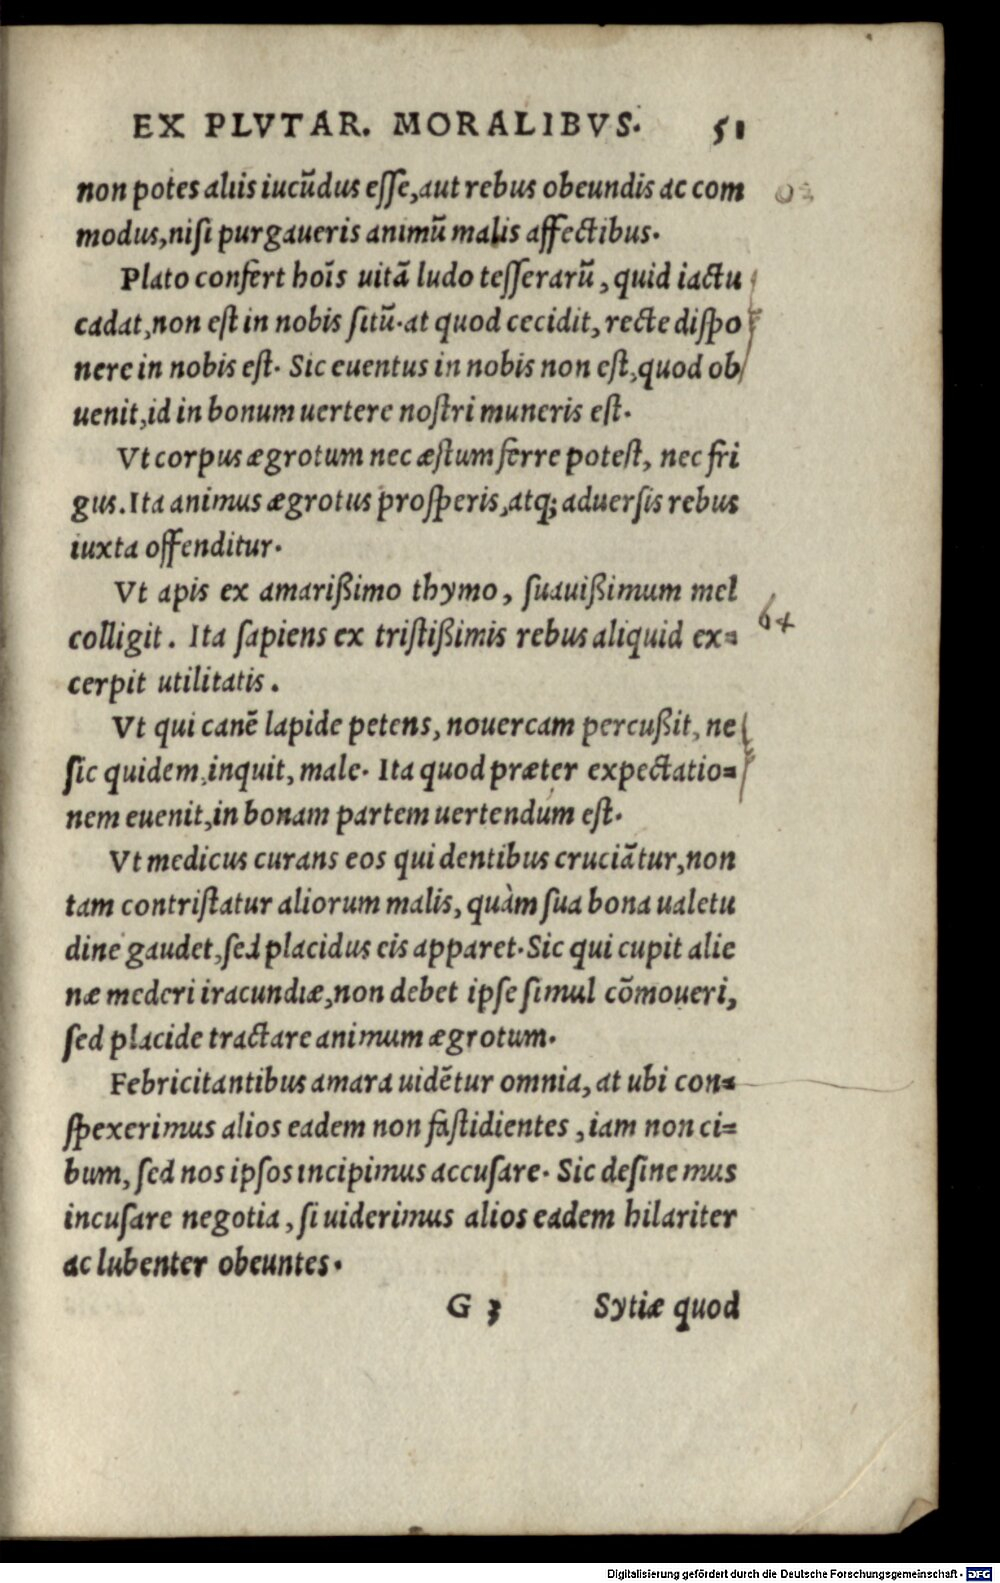 EX PLVTAR. MORALIBVS. 51
non potes aliis iucūdus esse, aut rebus obeundis ac com
modus, nisi purgaueris animū malis affectibus.
Plato confert hoīs uitā ludo tesserarū, quid iactu
cadat, non est in nobis sitū. at quod cecidit, recte dispo
nere in nobis est. Sic euentus in nobis non est, quod ob
uenit, id in bonum uertere nostri muneris est.
Vt corpus ægrotum nec æstum ferre potest, nec fri
gus. Ita animus ægrotus prosperis, atq; aduersis rebus
iuxta offenditur.
Vt apis ex amarißimo thymo, suauißimum mel
colligit. Ita sapiens ex tristißimis rebus aliquid ex=
64
cerpit utilitatis.
Vt qui canē lapide petens, nouercam percußit, ne
sic quidem, inquit, male. Ita quod præter expectatio=
nem euenit, in bonam partem uertendum est.
Vt medicus curans eos qui dentibus cruciātur, non
tam contristatur aliorum malis, quàm sua bona ualetu
dine gaudet, sed placidus eis apparet. Sic qui cupit alie
næ mederi iracundiæ, non debet ipse simul cōmoueri,
sed placide tractare animum ægrotum.
Febricitantibus amara uidētur omnia, at ubi con=
spexerimus alios eadem non fastidientes, iam non ci=
bum, sed nos ipsos incipimus accusare. Sic desinemus
incusare negotia, si uiderimus alios eadem hilariter
ac lubenter obeuntes.
G 3 Sytiæ quod
Digitalisierung gefördert durch die Deutsche Forschungsgemeinschaft - DFG